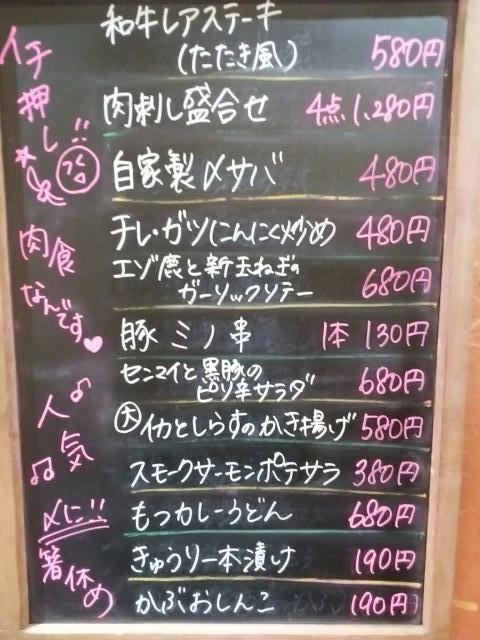 和牛レアステーキ
(たたき風) 580円
肉刺し盛合せ 4点 1,280円
自家製〆サバ 480円
チレ・ガツにんにく炒め 480円
エゾ鹿と新玉ねぎの
ガーリックソテー 680円
豚ミノ串 1本 130円
センマイと黒豚の
ピリ辛サラダ 680円
大 イカとしらすのかき揚げ 580円
スモークサーモンポテサラ 380円
もつカレーうどん 680円
きゅうり一本漬け 190円
かぶおしんこ 190円
イチ押し!!
肉食なんです♥
人気
〆に!!
箸休め